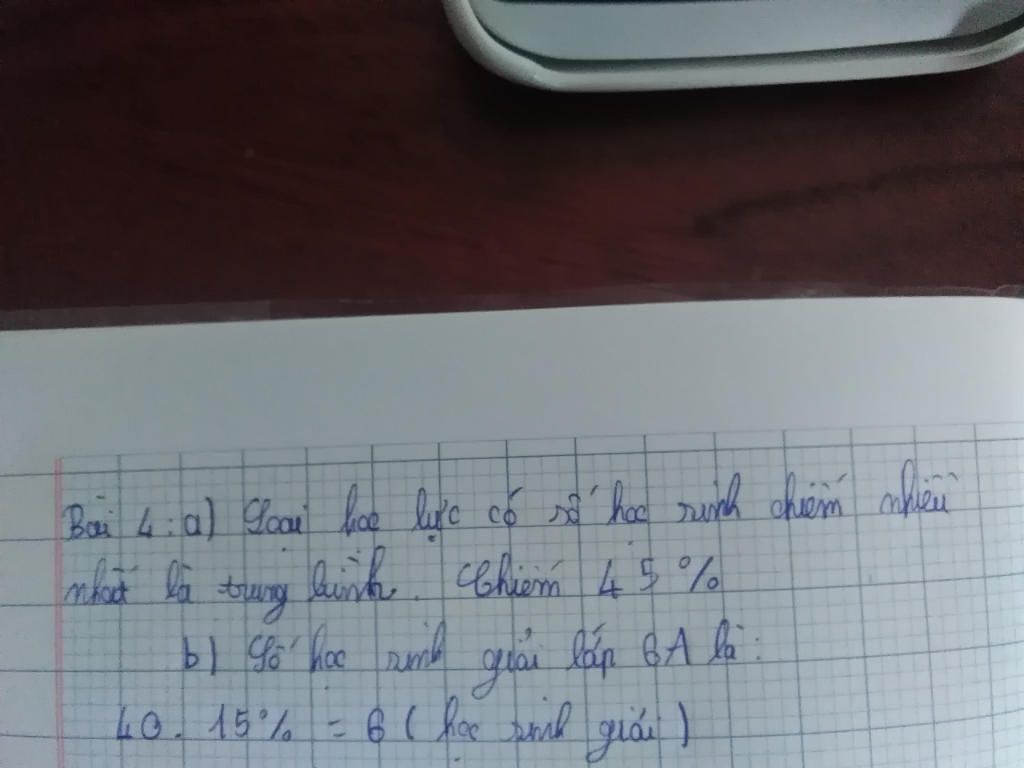 Bài 4: a) Loại học lực có số học sinh chiếm nhiều
nhất là trung bình. Chiếm 45%
b) Số học sinh giỏi lớp 6A là:
40. 15% = 6 ( học sinh giỏi )